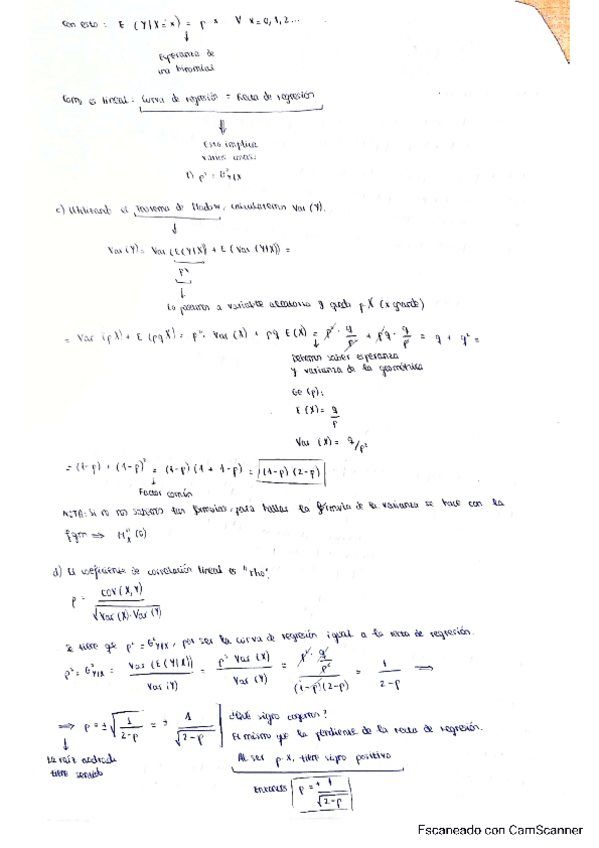 Con esto: E (Y|X=x) = p·x ∀ x=0,1,2...
↓
Esperanza de
una binomial
Como es lineal: Curva de regresión = Recta de regresión
⇓
Esto implica
varias cosas:
1) ρ² = G²Y|X
c) Utilizando el teorema de , calcularemos Var (Y).
↓
Var (Y) = Var (E(Y|X)) + E (Var (Y|X)) =
pX
↓
Lo pasamos a variable aleatoria y queda p·X (x grande)
= Var (pX) + E (pqX) = p² · Var (X) + pq E(X) = p² · q/p² + pq · q/p = q + q² =
↓
Debemos saber esperanza
y varianza de la geométrica
Ge (p):
E (X) = q/p
Var (X) = q/p²
= (1-p) + (1-p)² = (1-p) (1 + 1-p) = (1-p) (2-p)
↓
Factor común
NOTA: Si no nos sabemos las fórmulas, para hallar la fórmula de la varianza se hace con la
fgm ⇒ (0)
d) El coeficiente de correlación lineal es "rho".
ρ = COV (X,Y) / √Var (X)·Var (Y)
Se tiene que ρ² = G²Y|X, por ser la curva de regresión igual a la recta de regresión.
ρ² = G²Y|X = Var (E(Y|X)) / Var (Y) = p² Var (X) / Var (Y) = p² · q/p² / (1-p)(2-p) = 1 / 2-p ⇒
⇒ ρ = ± √1/2-p = ± 1/√2-p
¿Qué signo cogemos?
El mismo que la pendiente de la recta de regresión.
↓
La raíz cuadrada
tiene sentido
Al ser p·X, tiene signo positivo
Entonces ρ = + 1/√2-p
Escaneado con CamScanner